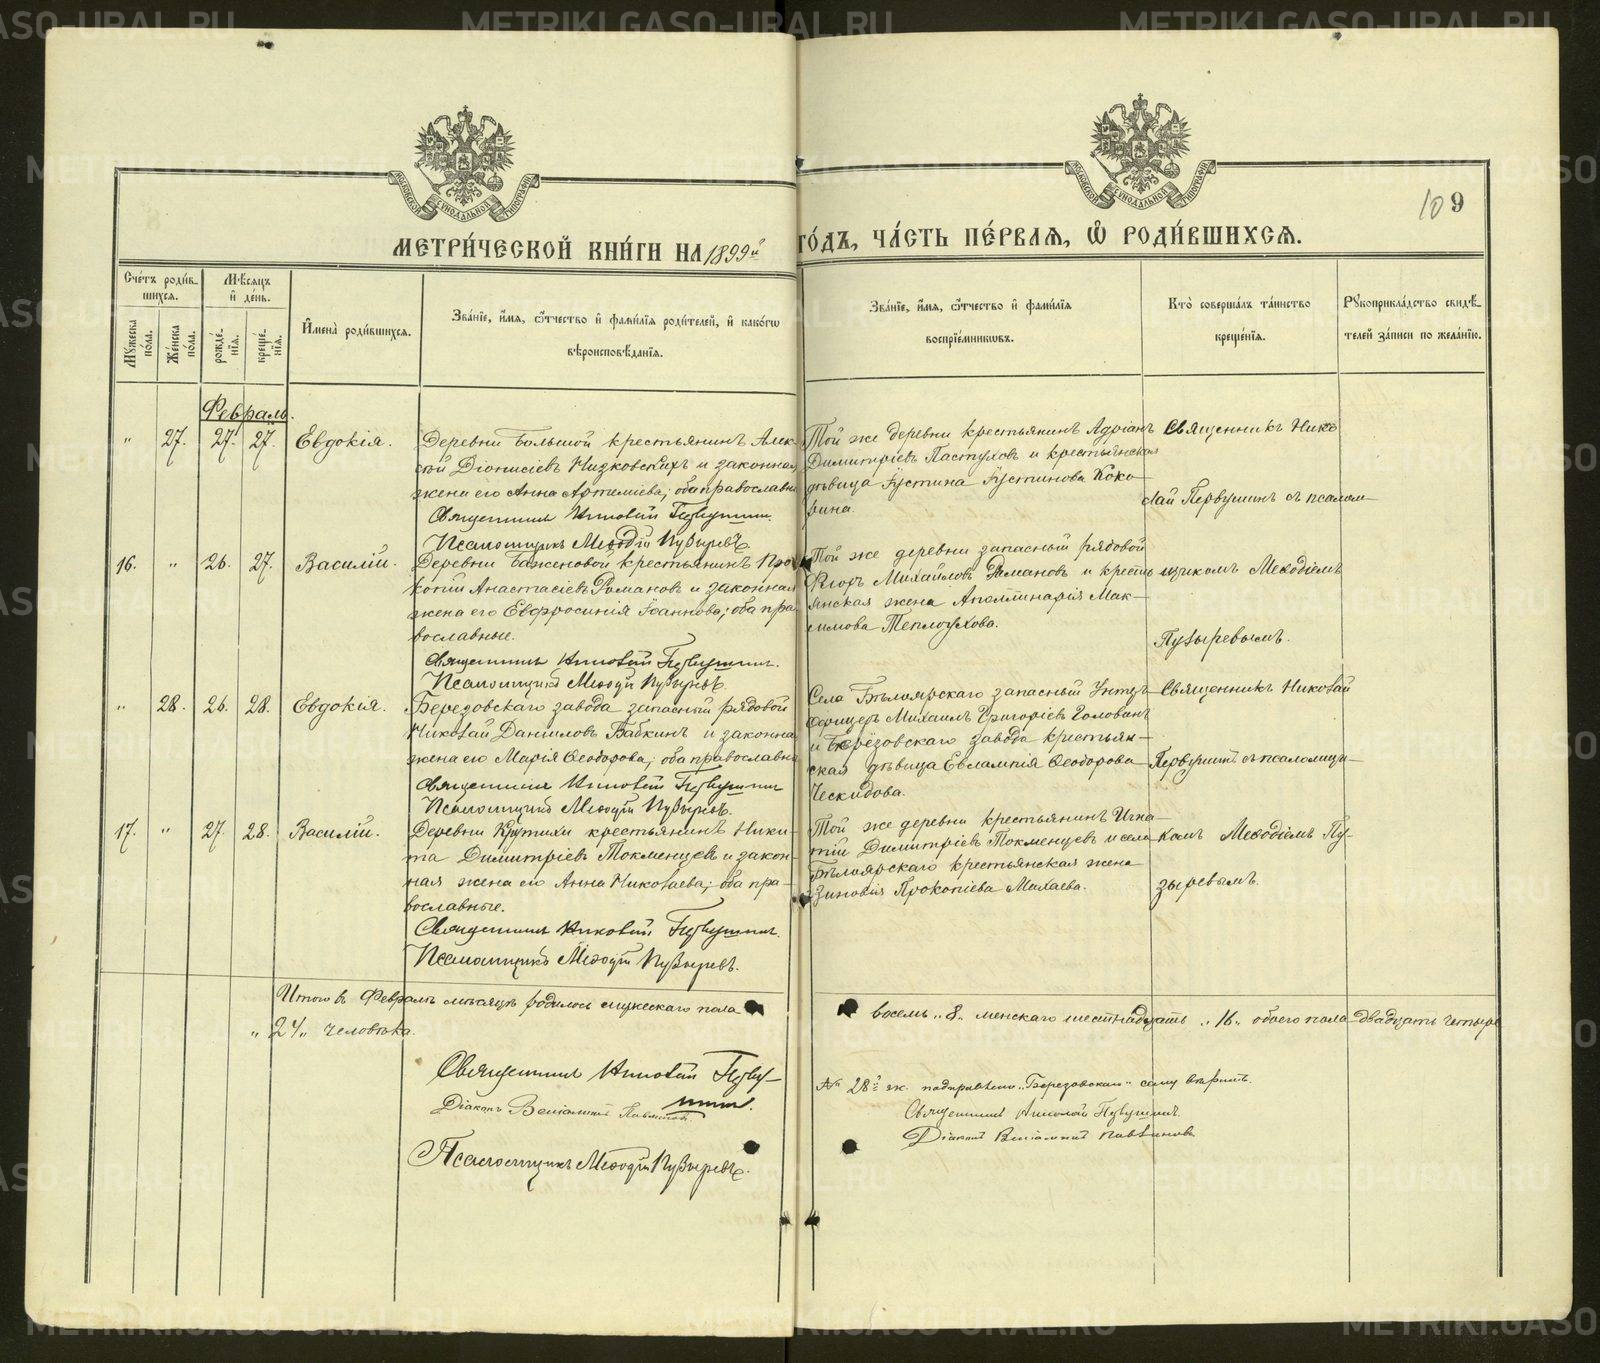 МЕТРИ́ЧЕСКОЙ КНИ́ГИ НА 1899й ГО́ДЪ, ЧА́СТЬ ПЕ́РВАЯ, Ѿ РОДИ́ВШИХСЯ.
109
Сче́тъ роди́в-
шихся.
Мѣ́сяцъ
и҆ де́нь.
Му́жеска по́ла.
Же́нска по́ла.
рожде́-
нїя.
креще́-
нїя.
И҆мена̀ роди́вшихся.
Зва́нїе, и҆́мя, ѻ҆́тчество и҆ фами́лїя роди́телей, и҆ како́гѡ
вѣроисповѣ́данїя.
Зва́нїе, и҆́мя, ѻ҆́тчество и҆ фами́лїя
воспрїе́мникѡвъ.
Кто̀ соверша́лъ та́инство
креще́нїя.
Рꙋкоприкла́дство свидѣ́-
телей за́писи по жела́нїю.
Февраль.
" 27. 27. 27. Евдокія.
Деревни Большой крестьянинъ Алек-
сѣй Діонисіевъ Низковскихъ и законная
жена его Анна Артеміева; оба православн
Священникъ Николай Первушинъ.
Псаломщикъ Меѳодій Пузыревъ.
Той же деревни крестьянинъ Адріанъ
Димитріевъ Пастуховъ и крестьянская
дѣвица Іустина Іустинова Коко-
рина.
Священникъ Нико-
лай Первушинъ съ псалом-
16. " 26. 27. Василій.
Деревни Баженовой крестьянинъ Про-
копій Анастасіевъ Романовъ и законная
жена его Евфросинія Іоаннова; оба пра-
вославные.
Священникъ Николай Первушинъ.
Псаломщикъ Меѳодій Пузыревъ.
Той же деревни запасный рядовой
Флоръ Михайловъ Романовъ и кресть-
янская жена Аполлинарія Мак-
симова Теплоухова.
щикомъ Меѳодіемъ
Пузыревымъ.
" 28. 26. 28. Евдокія.
Березовскаго завода запасный рядовой
Николай Даніиловъ Бабкинъ и законна
жена его Марія Ѳеодорова; оба православн
Священникъ Николай Первушинъ
Псаломщикъ Меѳодій Пузыревъ.
Села Бѣлоярскаго запасный Унтеръ-
Офицеръ Михаилъ Григоріевъ Голованъ
и Берёзовскаго завода крестьян-
ская дѣвица Евлампія Ѳеодорова
Ческидова.
Священникъ Николай
Первушинъ съ псаломщи-
17. " 27. 28. Василій.
Деревни Крутихи крестьянинъ Ники-
та Димитріевъ Токменцевъ и закон-
ная жена его Анна Николаева; оба пра-
вославные.
Священникъ Николай Первушинъ.
Псаломщикъ Меѳодій Пузыревъ.
Той же деревни крестьянинъ Игна-
тій Димитріевъ Токменцевъ и села
Бѣлоярскаго крестьянская жена
Зиновія Прокопіева Михаева.
комъ Меѳодіемъ Пу-
зыревымъ.
Итого въ Февралѣ мѣсяцѣ родилось мужескаго пола восемь „8„ женскаго шестнадцать „16„ обоего пола двадцать четыре
„24„ человѣка.
Священникъ Николай Перву-
шинъ.
Діаконъ Веніаминъ
Псаломщикъ Меѳодій Пузыревъ.
Священникъ Николай Первушинъ.
Діаконъ Веніаминъ
METRIKI.GASO-URAL.RU